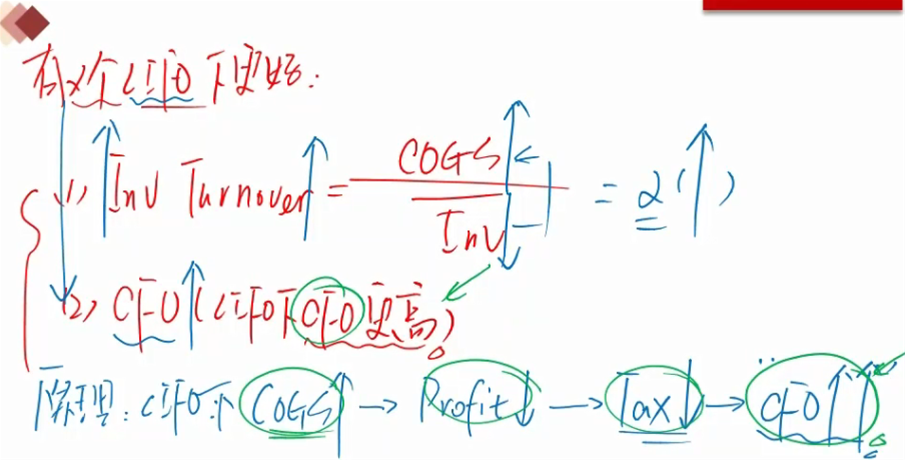 有2个LIFO下更好:
(1) ↑Inv Turnover↑ = COGS↑ / Inv↓ = 2(↑)
(2) CFO↑(LIFO下CFO更高)。
原理: LIFO下COGS↑ → Profit↓ → Tax↓ → CFO↑↑。